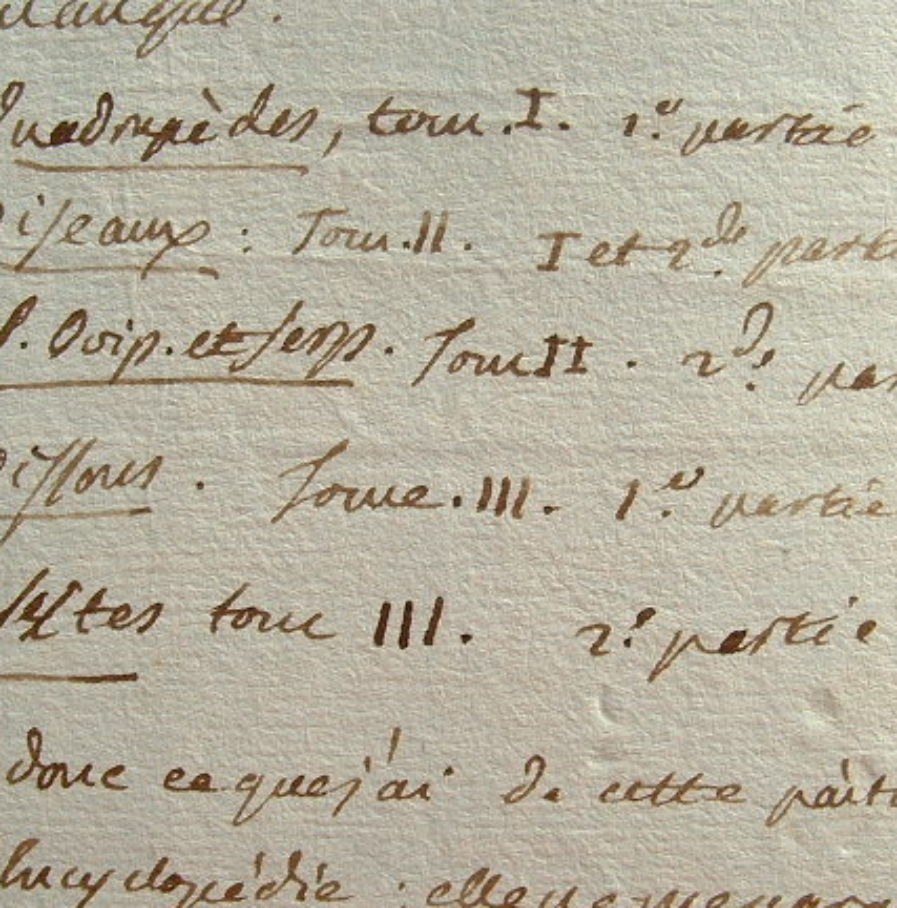 Quadrupèdes, tom. I. 1.e partie
Oiseaux : Tom. II. I et 2.de part
Q. Ovip. et Serp. Tom II. 2.de par
Poissons. Tome. III. 1.e partie
tes tome III. 2.e partie
donc ce que j'ai de cette parti
Encyclopédie : elle